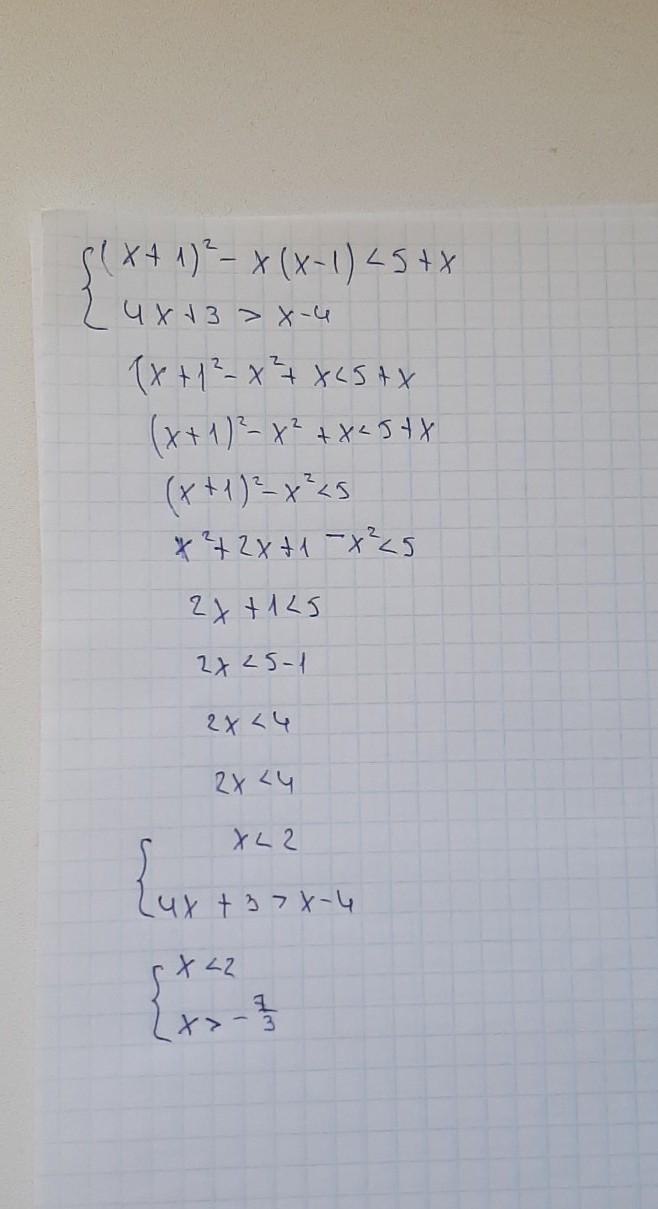 {(x+1)²-x(x-1)<5+x
4x+3>x-4
(x+1²-x²+x<5+x
(x+1)²-x²+x<5+x
(x+1)²-x²<5
x²+2x+1-x²<5
2x+1<5
2x<5-1
2x<4
2x<4
{x<2
4x+3>x-4
{x<2
x>-7/3